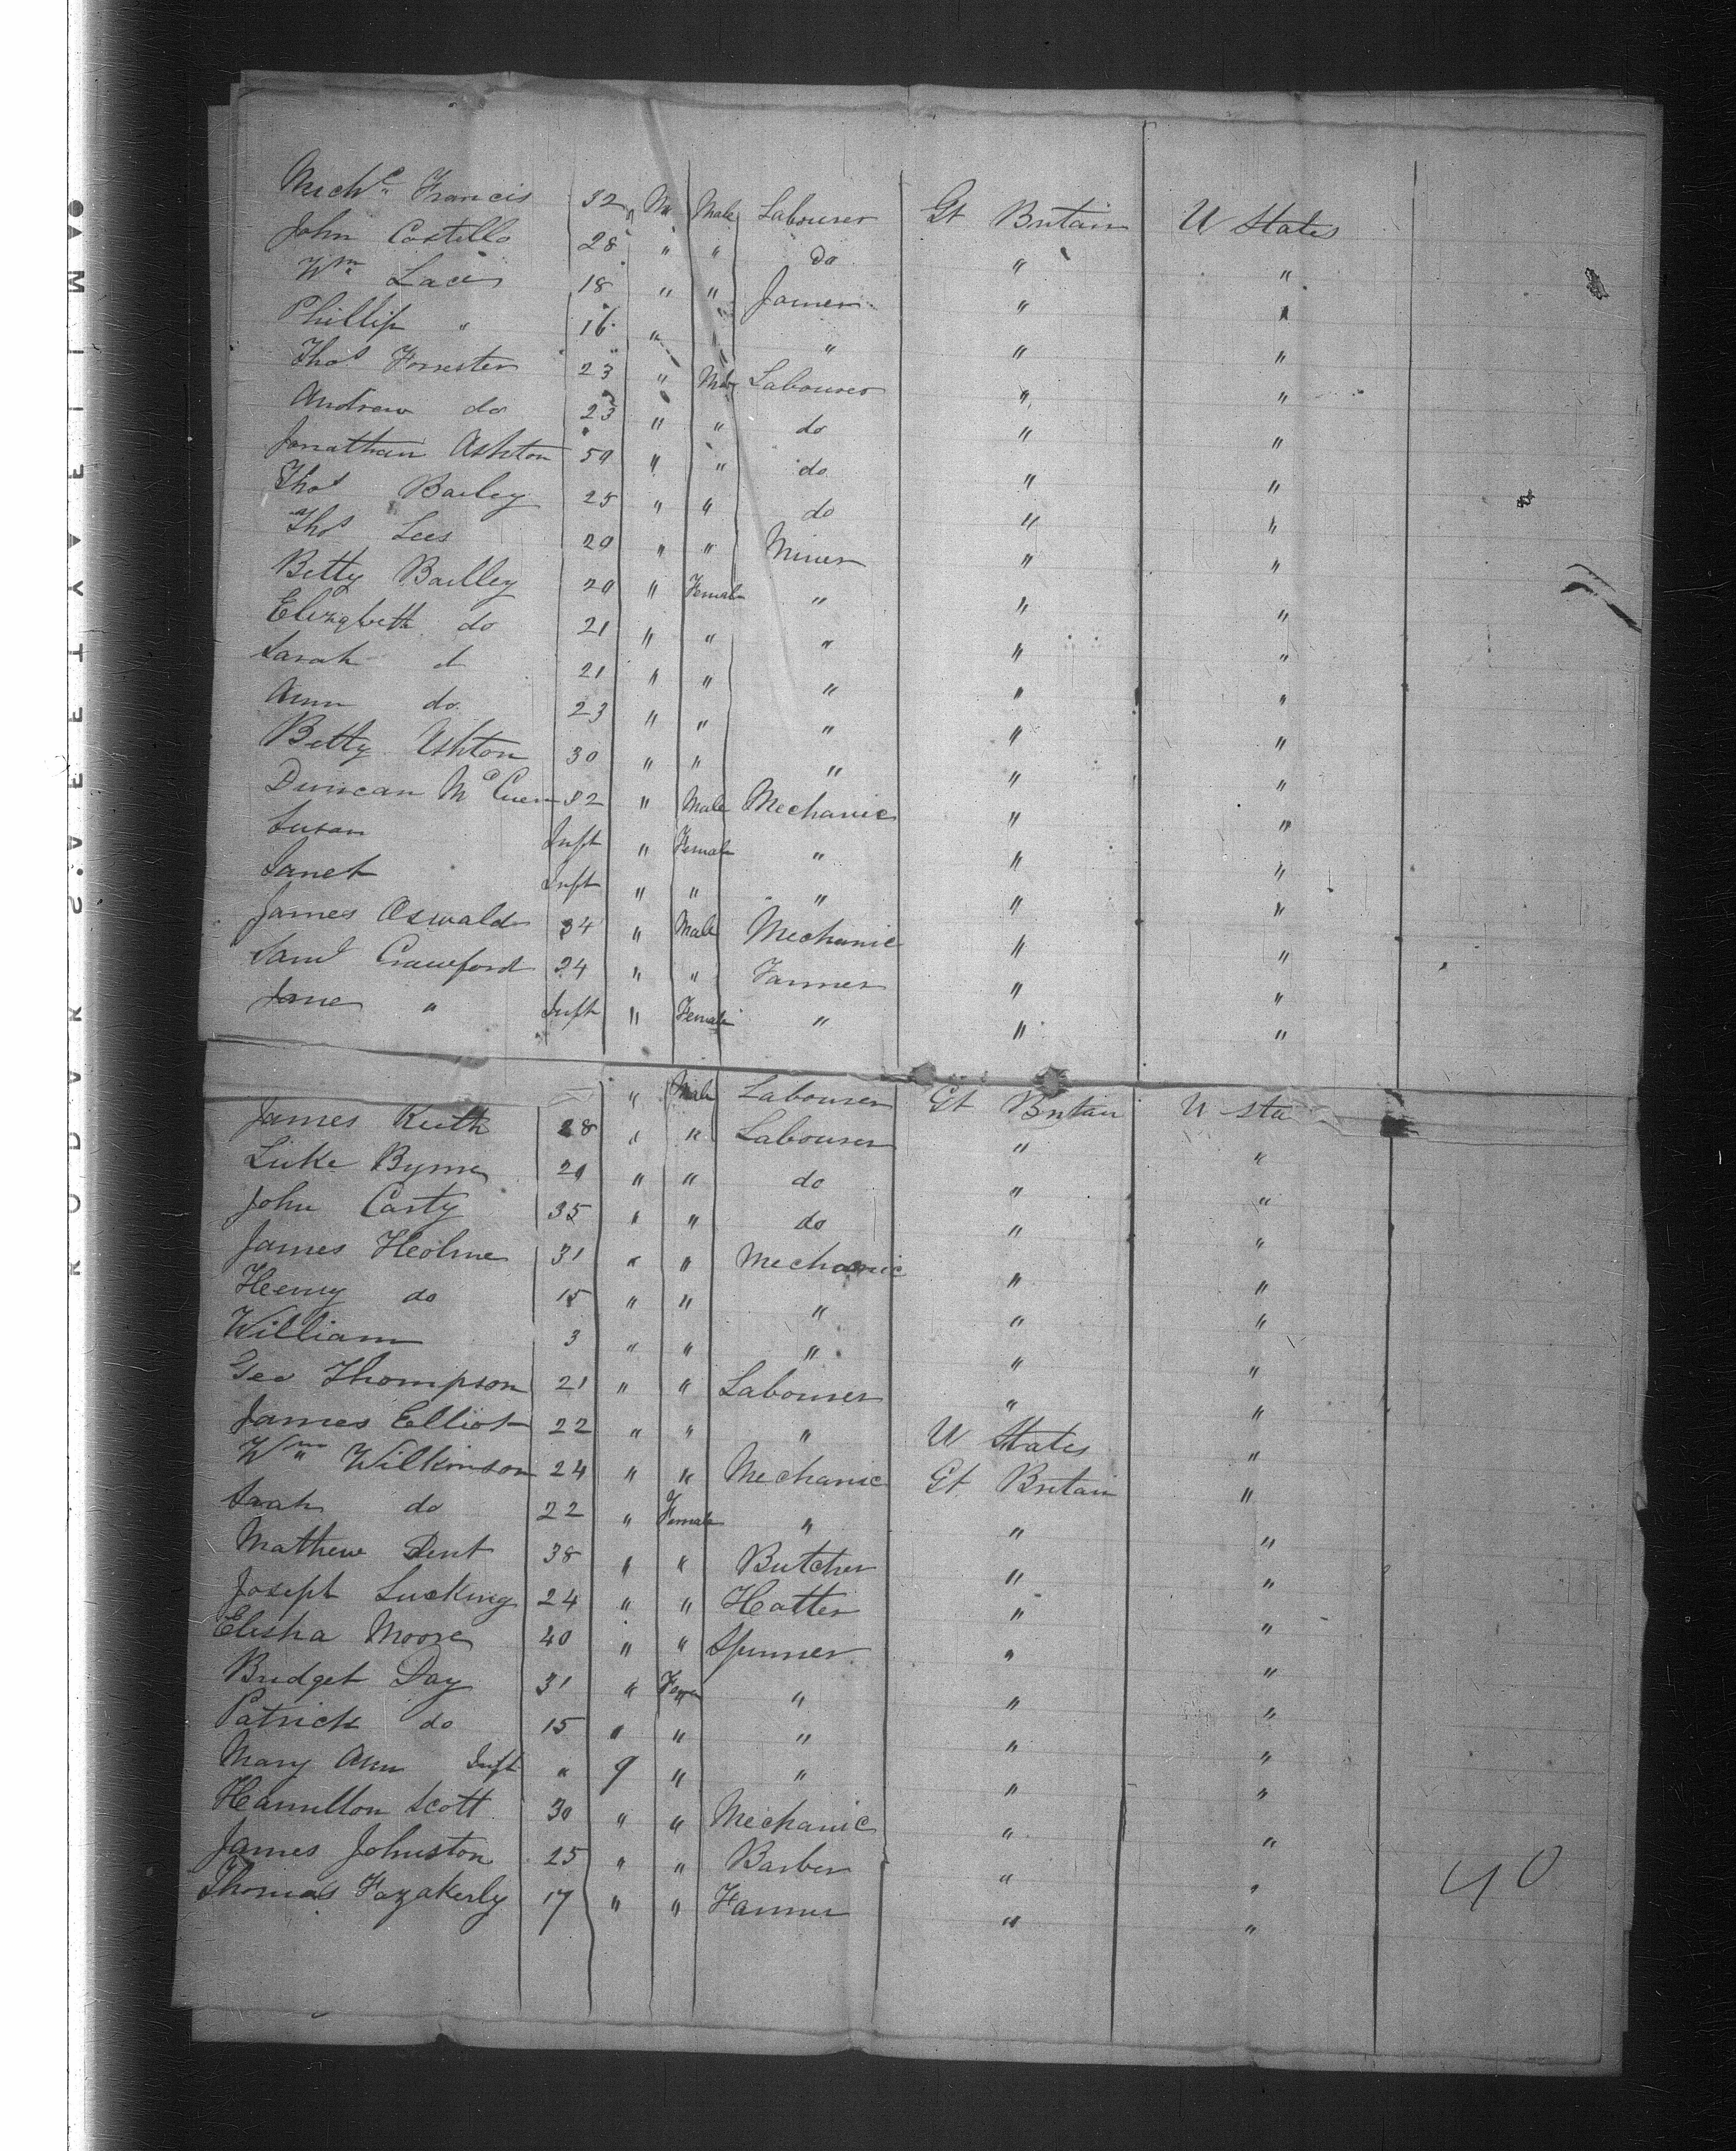 Mich.l Francis 32 M Male Labourer Gt Britain U States
John Costillo 28 " " do " "
Wm Laces 18 " " Farmer " "
Phillip " 16 " " " "
Thos Forrester 23 " Male Labourer " "
Andrew do 23 " " do " "
Jonathan Ashton 50 " " do " "
Thos Bailey 25 " " do " "
Thos Lees 20 " " Miner " "
Betty Bailley 20 " Female " " "
Elizabeth do 21 " " " " "
Sarah d 21 " " " " "
Ann do 23 " " " " "
Betty Ashton 30 " " " " "
Duncan McCuen 32 " Male Mechanic " "
Susan Inft " Female " " "
Janet Inft " " " " "
James Oswald 34 " Male Mechanic " "
Saml Crawford 24 " " Farmer " "
Jane " Inft " Female " " "
" Male Labourer Gt Britain U Sta
James Keith 28 " " Labourer " "
Luke Byrne 20 " " do " "
John Carty 35 " " do " "
James Heolme 31 " " Mechanic " "
Henry do 15 " " " " "
William 3 " " " " "
Geo Thompson 21 " " Labourer " "
James Elliot 22 " " " U States "
Wm Wilkinson 24 " " Mechanic Gt Britain "
Sarah do 22 " Female " " "
Mathew Dent 38 " " Butcher " "
Joseph Lucking 24 " " Hatter " "
Elisha Moore 40 " " Spinner " "
Bridget Day 31 " Fem " " "
Patrick do 15 " " " " "
Mary Ann Inft " 9 " " " "
Hamilton Scott 30 " " Mechanic " "
James Johnston 25 " " Barber " "
Thomas Fazakerly 17 " " Farmer " "
40